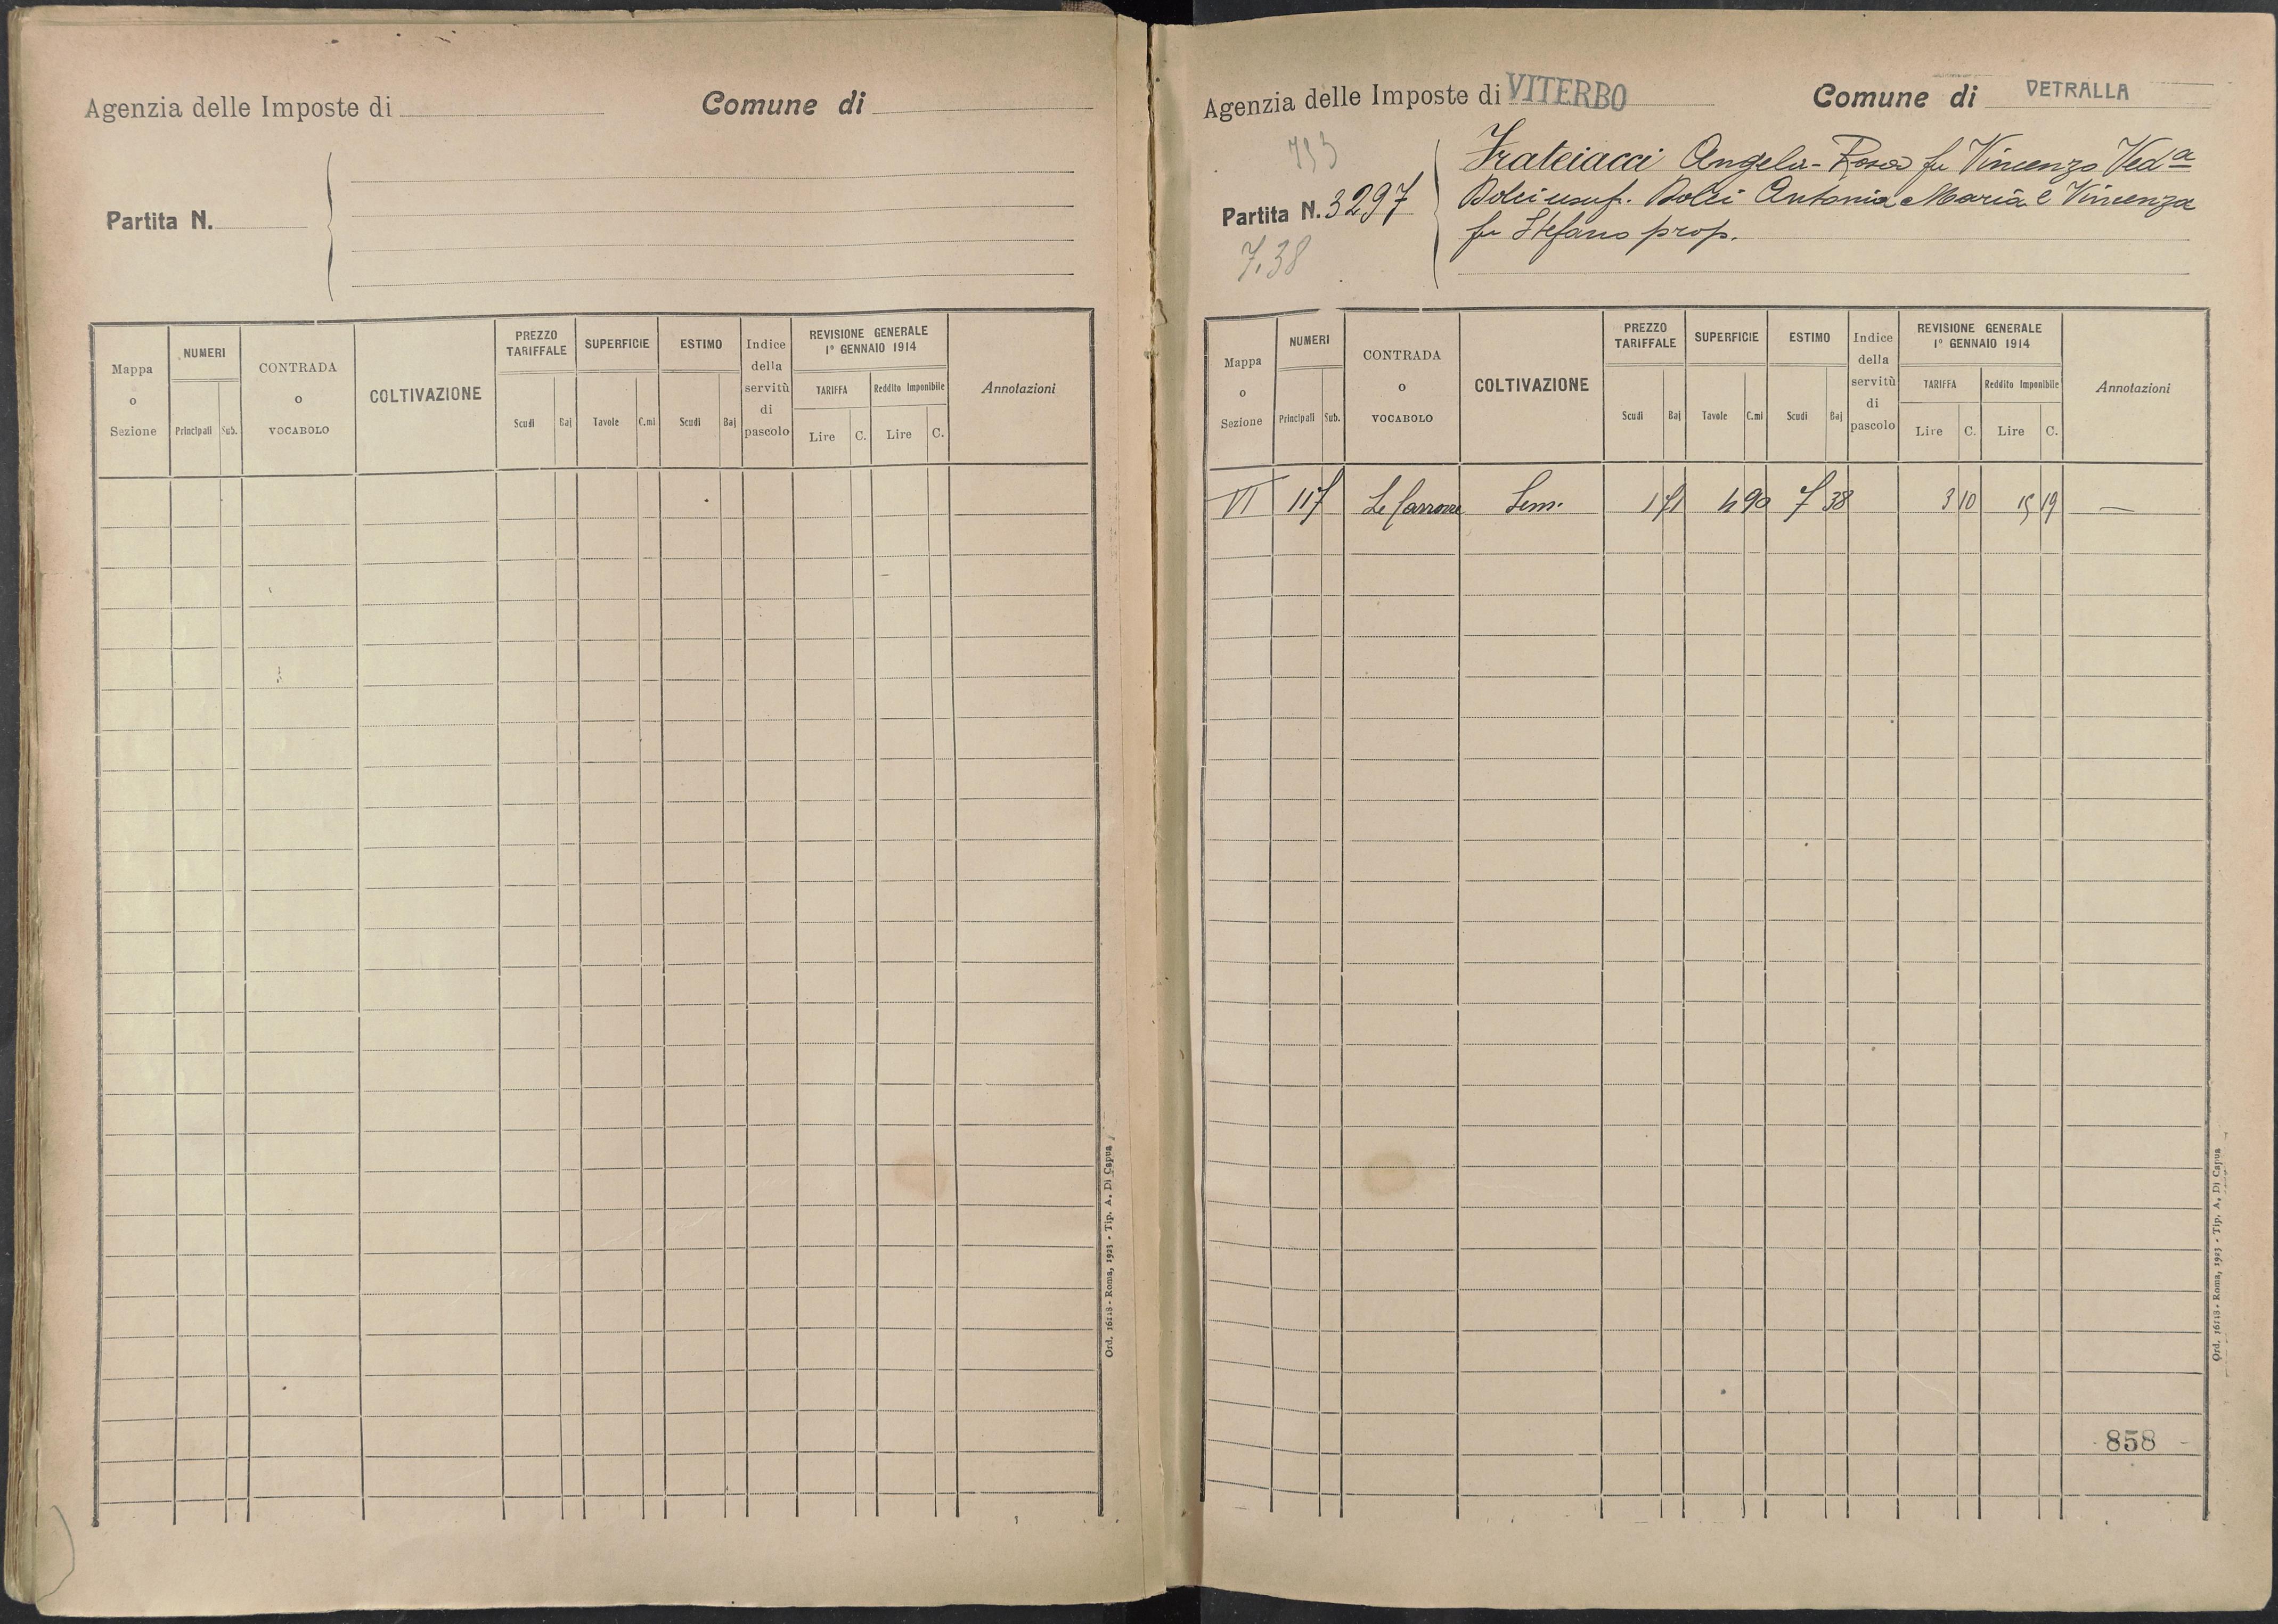 Agenzia delle Imposte di
Comune di
Partita N.
Mappa o Sezione
NUMERI
Principali
Sub.
CONTRADA o VOCABOLO
COLTIVAZIONE
PREZZO TARIFFALE
Scudi
Baj
SUPERFICIE
Tavole
C.mi
ESTIMO
Scudi
Baj
Indice della servitù di pascolo
REVISIONE GENERALE
1° GENNAIO 1914
TARIFFA
Lire
C.
Reddito Imponibile
Lire
C.
Annotazioni
Ord. 16118 - Roma, 1923 - Tip. A. Di Capua
Agenzia delle Imposte di VITERBO
Comune di VETRALLA
793
Partita N. 3297
7.38
Frateiacci Angela-Rosa fu Vincenzo Ved.a
Dolci usuf. Dolci Antonia Maria e Vincenza
fu Stefano prop.
Mappa o Sezione
NUMERI
Principali
Sub.
CONTRADA o VOCABOLO
COLTIVAZIONE
PREZZO TARIFFALE
Scudi
Baj
SUPERFICIE
Tavole
C.mi
ESTIMO
Scudi
Baj
Indice della servitù di pascolo
REVISIONE GENERALE
1° GENNAIO 1914
TARIFFA
Lire
C.
Reddito Imponibile
Lire
C.
Annotazioni
VI 117 Le Sem. 1 71 4 90 7 38 3 10 15 19 —
858
Ord. 16118 - Roma, 1923 - Tip. A. Di Capua